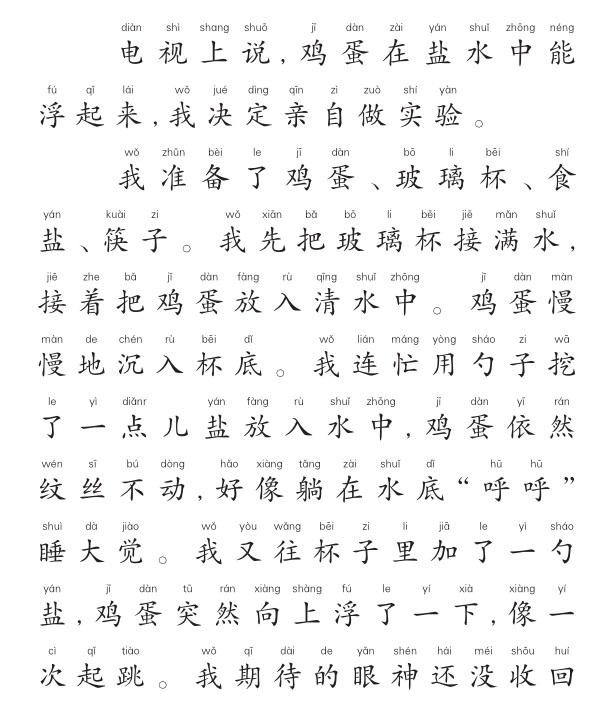 diàn shì shang shuō jī dàn zài yán shuǐ zhōng néng
电视上说,鸡蛋在盐水中能
fú qǐ lái wǒ jué dìng qīn zì zuò shí yàn
浮起来,我决定亲自做实验。
wǒ zhǔn bèi le jī dàn bō li bēi shí
我准备了鸡蛋、玻璃杯、食
yán kuài zi wǒ xiān bǎ bō li bēi jiē mǎn shuǐ
盐、筷子。我先把玻璃杯接满水,
jiē zhe bǎ jī dàn fàng rù qīng shuǐ zhōng jī dàn màn
接着把鸡蛋放入清水中。鸡蛋慢
màn de chén rù bēi dǐ wǒ lián máng yòng sháo zi wā
慢地沉入杯底。我连忙用勺子挖
le yì diǎnr yán fàng rù shuǐ zhōng jī dàn yī rán
了一点儿盐放入水中,鸡蛋依然
wén sī bú dòng hǎo xiàng tǎng zài shuǐ dǐ hū hū
纹丝不动,好像躺在水底“呼呼”
shuì dà jiào wǒ yòu wǎng bēi zi li jiā le yì sháo
睡大觉。我又往杯子里加了一勺
yán jī dàn tū rán xiàng shàng fú le yí xià xiàng yí
盐,鸡蛋突然向上浮了一下,像一
cì qǐ tiào wǒ qī dài de yǎn shén hái méi shōu huí
次起跳。我期待的眼神还没收回